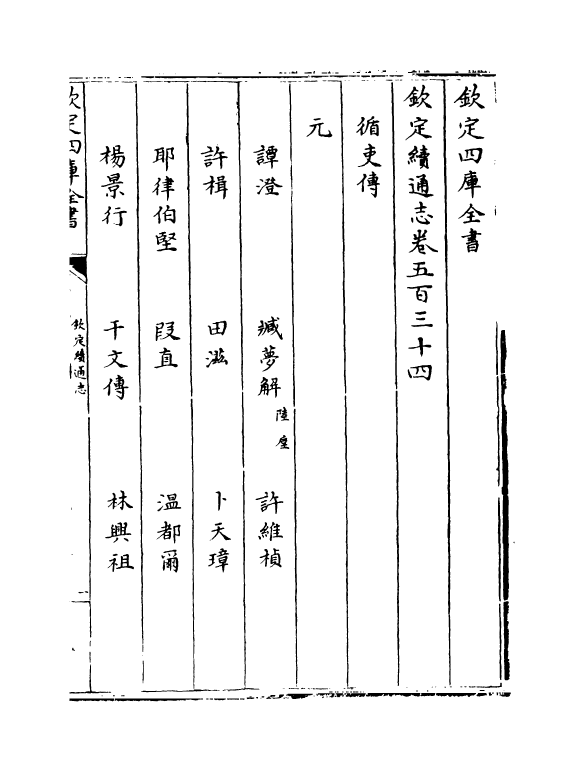 欽定四庫全書
欽定續通志卷五百三十四
循吏傳
元
譚澄 臧夢解 陸垕 許維楨
許楫 田滋 卜天璋
耶律伯堅 段直 温都爾
楊景行 干文傳 林興祖
欽定四庫全書
欽定續通志
一